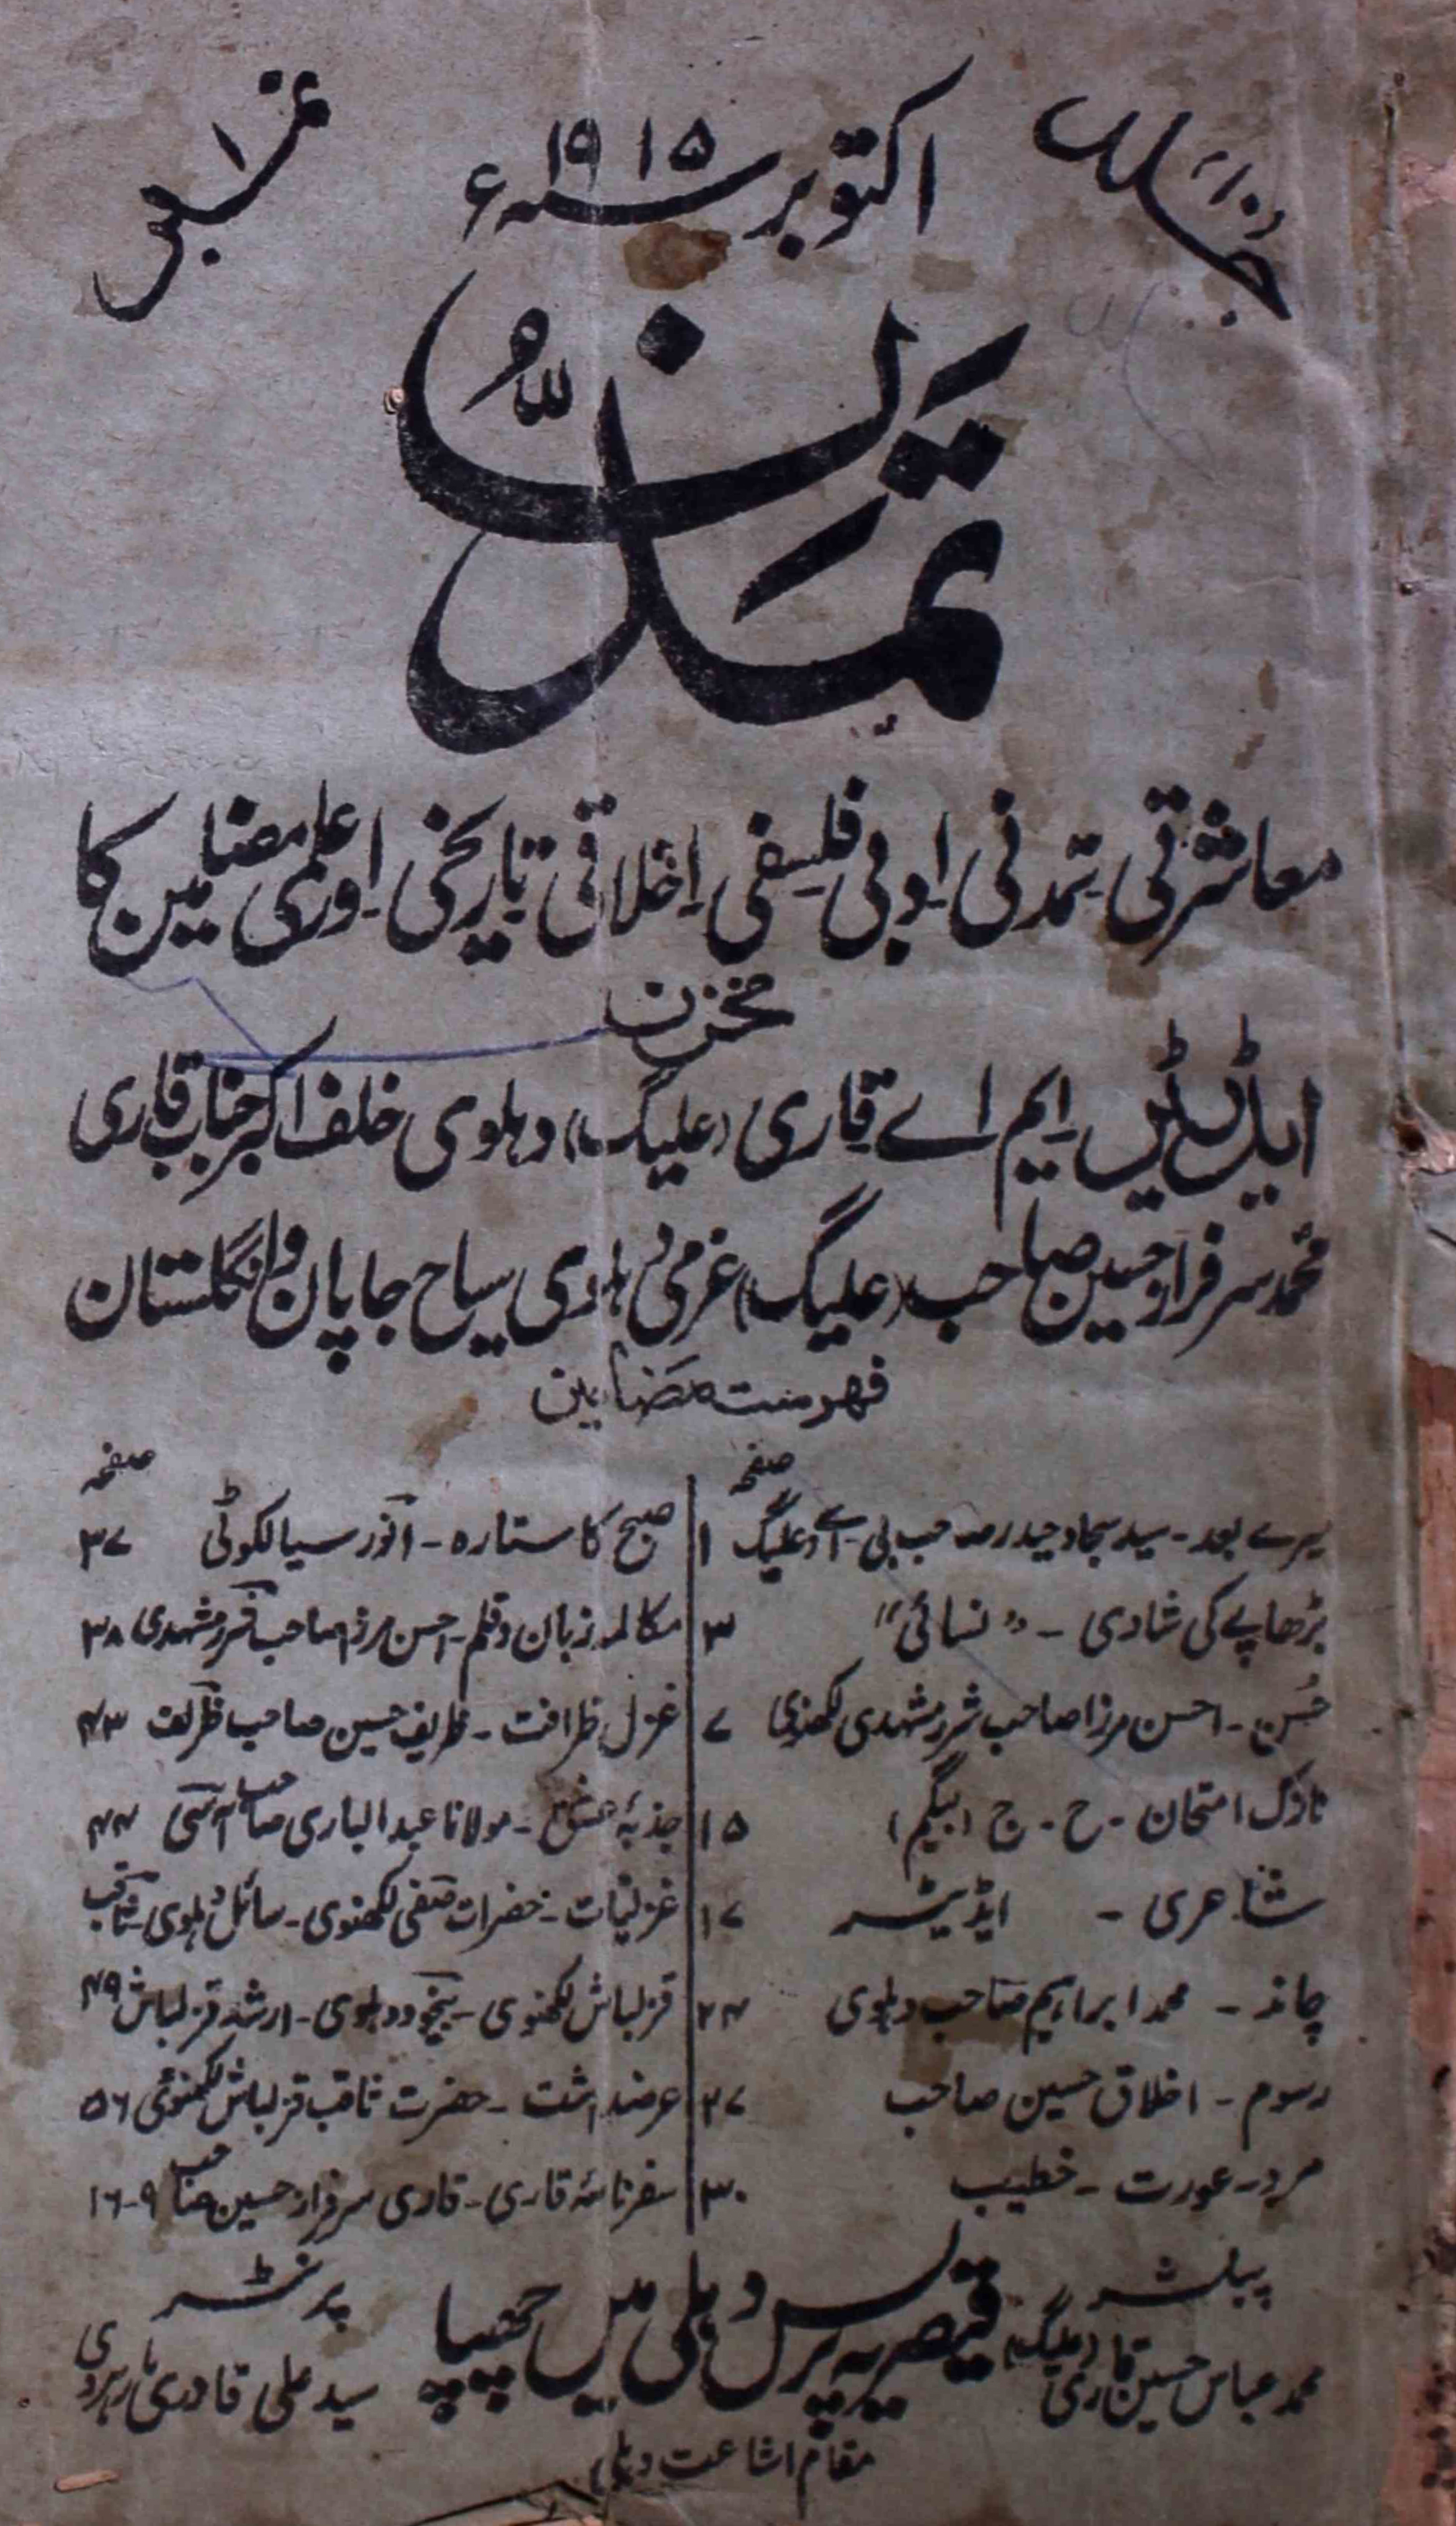 جلد ۱۰
اکتوبر سنہ ۱۹۱۵ء
نمبر ۱
للہ
تمدن
معاشرتی تمدنی ادبی فلسفی اخلاقی تاریخی اور علمی مضامین کا
مخزن
ایڈیٹر ایم اے قاری (علیگ) دہلوی خلف اکبر جناب قاری
محمد سرفراز حسین صاحب (علیگ) عزمی دہلوی سیاح جاپان و انگلستان
فہرست مضامین
صفحہ
میرے بعد - سید سجاد حیدر صاحب بی - اے (علیگ) ۱
بڑھاپے کی شادی - "نسائی" ۳
حُسن - احسن مرزا صاحب شرر مشہدی لکھنوی ۷
نازک امتحان - ح - ج (بیگم) ۱۵
شاعری - ایڈیٹر ۱۷
چاند - محمد ابراہیم صاحب دہلوی ۲۴
رسوم - اخلاق حسین صاحب ۲۷
مرد - عورت - خطیب ۳۰
صفحہ
صبح کا ستارہ - انور سیالکوٹی ۳۷
مکالمہ زبان و قلم - احسن مرزا صاحب شرر مشہدی ۳۸
غزل ظرافت - ظریف حسین صاحب ظریف ۴۳
جذبۂ عشق - مولانا عبد الباری صاحب آسی ۴۴
غزلیات - حضرات صفی لکھنوی - سائل دہلوی - ثاقب
قزلباش لکھنوی - بیخود دہلوی - ارشد قزلباش ۴۹
عرضداشت - حضرت ثاقب قزلباش لکھنوی ۵۶
سفرنامۂ قاری - قاری سرفراز حسین صاحب ۹-۱۶
پبلشر
محمد عباس حسین قاری (علیگ)
قیصریہ پریس دہلی میں چھپا
پرنٹر
سید علی قادری مارہروی
مقام اشاعت دہلی